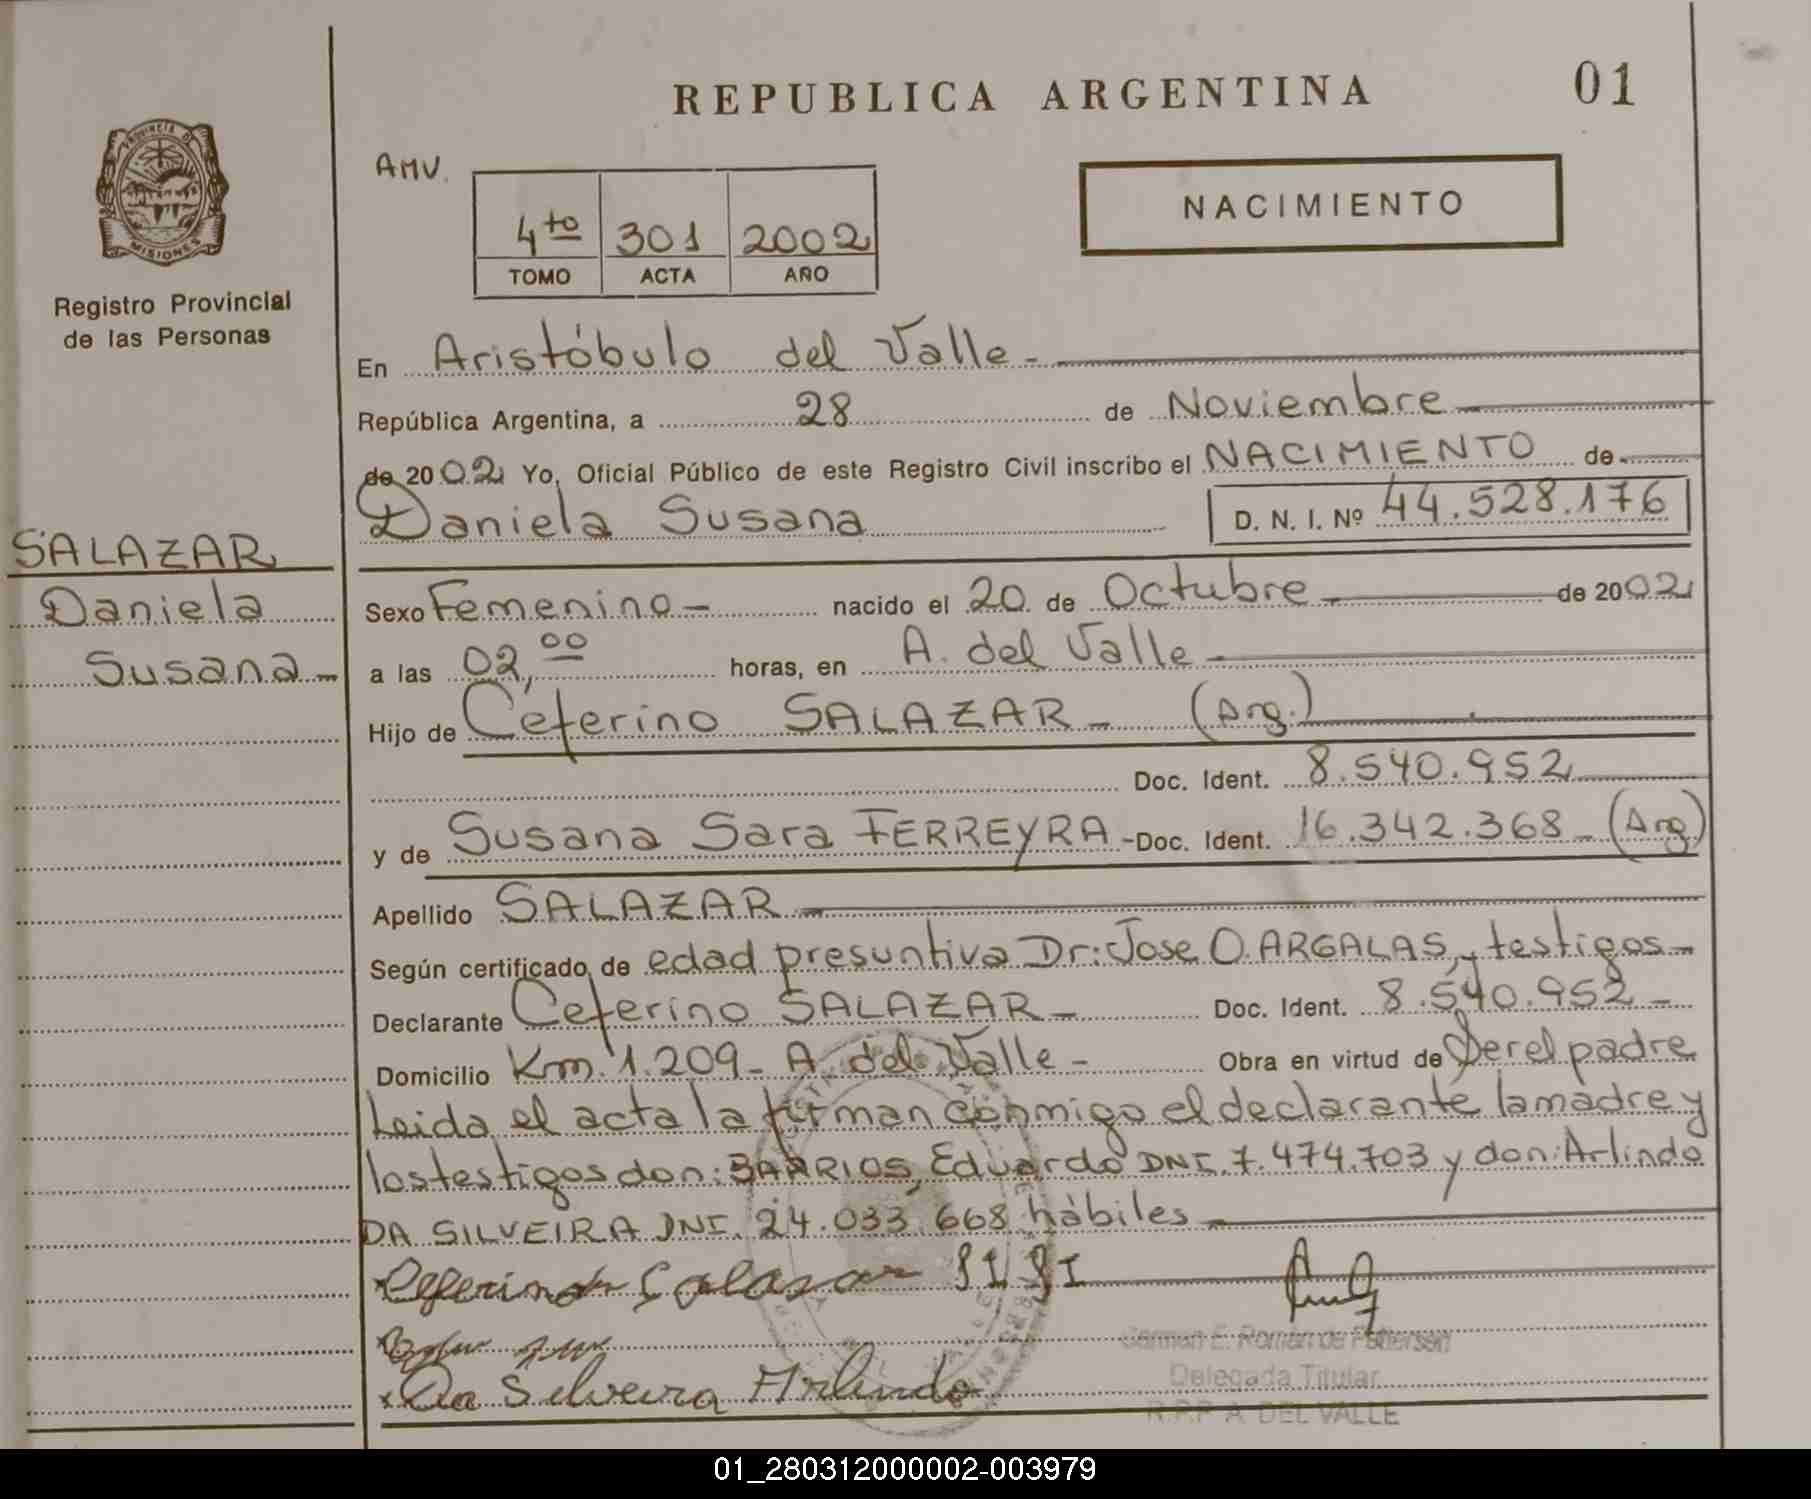 REPUBLICA ARGENTINA
01
PROVINCIA DE
MISIONES
Registro Provincial
de las Personas
AMV.
4to 301 2002
TOMO ACTA AÑO
NACIMIENTO
En Aristóbulo del Valle.-
República Argentina, a 28 de Noviembre
de 2002 Yo, Oficial Público de este Registro Civil inscribo el NACIMIENTO de
Daniela Susana
D. N. I. Nº 44.528.176
SALAZAR
Daniela
Susana
Sexo Femenino- nacido el 20 de Octubre de 2002
a las 02,00 horas, en A. del Valle
Hijo de Ceferino SALAZAR (Arg.)
Doc. Ident. 8.540.952
y de Susana Sara FERREYRA - Doc. Ident. 16.342.368 (Arg)
Apellido SALAZAR
Según certificado de edad presuntiva Dr: Jose O. ARGALAS, y testigos
Declarante Ceferino SALAZAR Doc. Ident. 8.540.952
Domicilio Km. 1.209- A. del Valle - Obra en virtud de Ser el padre
Leida el acta la firman conmigo el declarante la madre y
los testigos don: BARRIOS, Eduardo DNI. 7.474.703 y don: Arlindo
DA SILVEIRA DNI. 24.033.668 hàbiles
Ceferino Salasar
Carmen E. Roman de
Delegada Titular
Da Silveira Arlindo
R.P.P A. DEL VALLE
01_280312000002-003979